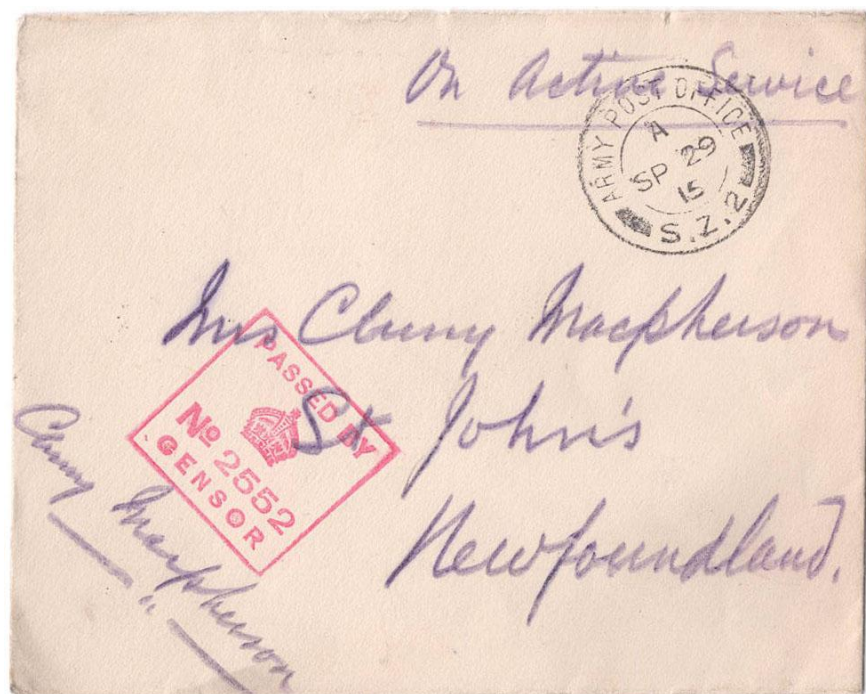 On Active Service
ARMY POST OFFICE
A
SP 29
15
S.Z.2
Mrs Cluny Macpherson
St John's
Newfoundland.
PASSED BY
No 2552
CENSOR
Cluny Macpherson